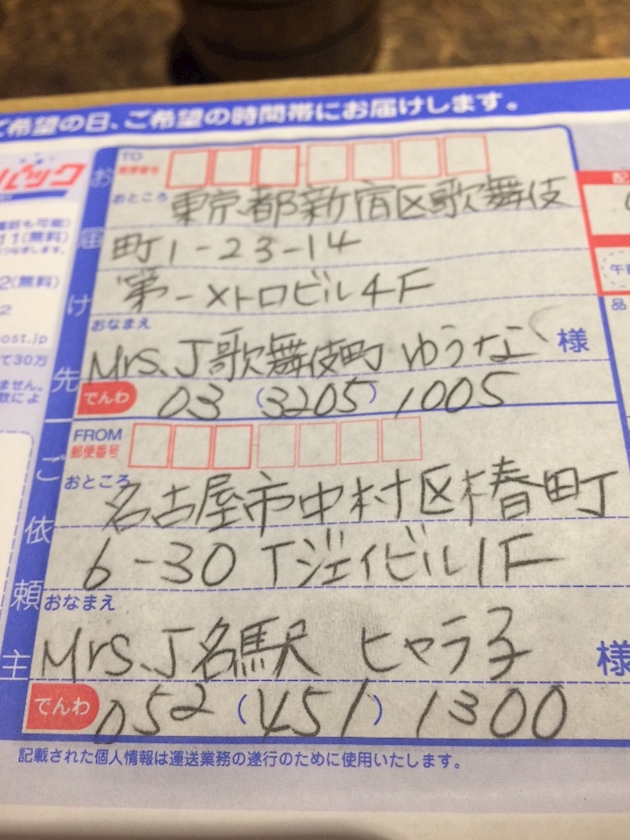 ご希望の日、ご希望の時間帯にお届けします。
パック
も可能
11(無料)
2(無料)
ost.jp
て30万
ません。
お届け先
TO
郵便番号
おところ
東京都新宿区歌舞伎
町1-23-14
第一メトロビル4F
おなまえ
Mrs.J歌舞伎町 ゆうな 様
でんわ 03 (3205) 1005
ご依頼主
FROM
郵便番号
おところ
名古屋市中村区椿町
6-30 Tジェイビル1F
おなまえ
Mrs.J名駅 ヒャラ子 様
でんわ 052 (451) 1300
記載された個人情報は運送業務の遂行のために使用いたします。
配
午前
品